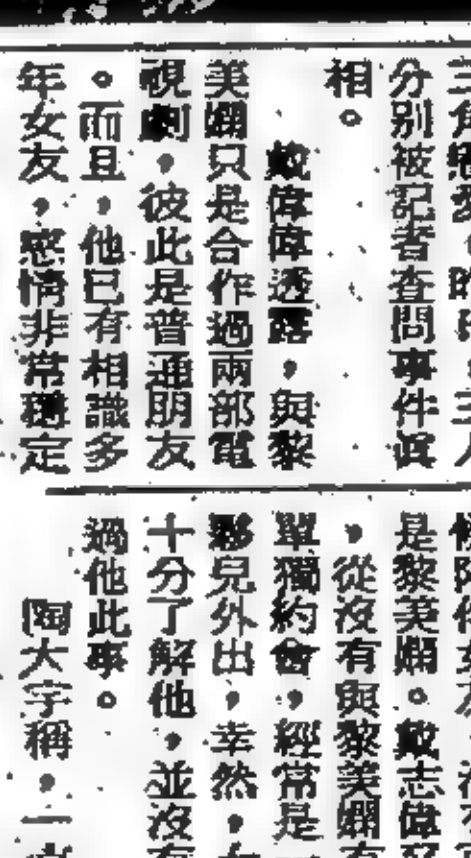 分別被記者查問事件眞
相。
戴偉偉透露，與黎
美嫻只是合作過兩部電
視劇，彼此是普通朋友
。而且，他已有相識多
年女友，感情非常穩定
是黎美嫻。戴志偉
，從沒有與黎美嫻
單獨約會，經常是一
夥兒外出，幸然，
十分了解他，並沒有
過他此事。
陶大宇稱，一